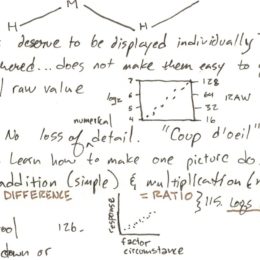 M
H H
deserve to be displayed individually
hered... does not make them easy to
raw value
7 128
6 64
log2 5 32 RAW
4 16
numerical
No loss of ^ detail. "Coup d'oeil"
Learn how to make one picture do
addition (simple) & multiplication
DIFFERENCE = RATIO } 115. Logs
response
126.
factor
circumstance
down or